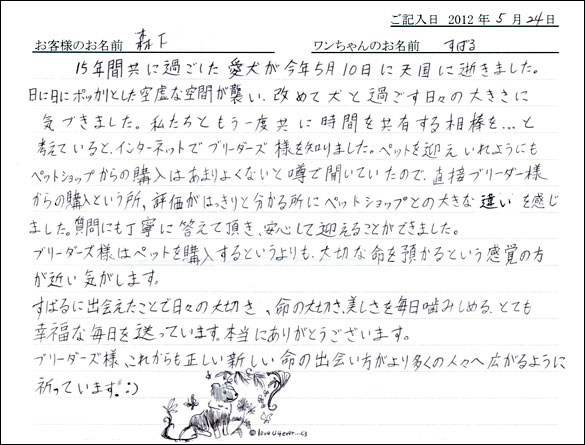 ご記入日 2012 年 5 月 24 日
お客様のお名前 森下 ワンちゃんのお名前 すばる
15年間共に過ごした愛犬が今年5月10日に天国に逝きました。
日に日にポッカリとした空虚な空間が襲い、改めて犬と過ごす日々の大きさに
気づきました。私たちともう一度共に時間を共有する相棒を...と
考えていると、インターネットでブリーダーズ様を知りました。ペットを迎えいれようにも
ペットショップからの購入はあまりよくないと噂で聞いていたので、直接ブリーダー様
からの購入という所、評価がはっきりと分かる所にペットショップとの大きな違いを感じ
ました。質問にも丁寧に答えて頂き、安心して迎えることができました。
ブリーダーズ様はペットを購入するというよりも、大切な命を預かるという感覚の方
が近い気がします。
すばるに出会えたことで日々の大切さ、命の大切さ、美しさを毎日噛みしめる、とても
幸福な毎日を送っています。本当にありがとうございます。
ブリーダーズ様、これからも正しい新しい命の出会い方がより多くの人々へ広がるように
祈っています。:)
©love U4ever...<3